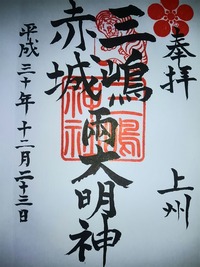 奉拝
上州
三嶋
赤城
両大明神
平成三十年十二月二十三日